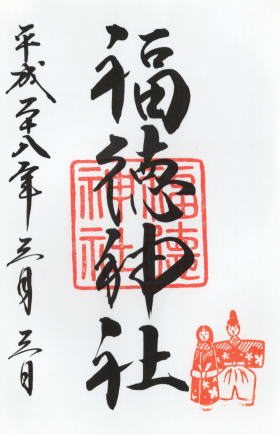 福徳神社
平成二十八年三月三日
福徳
神社